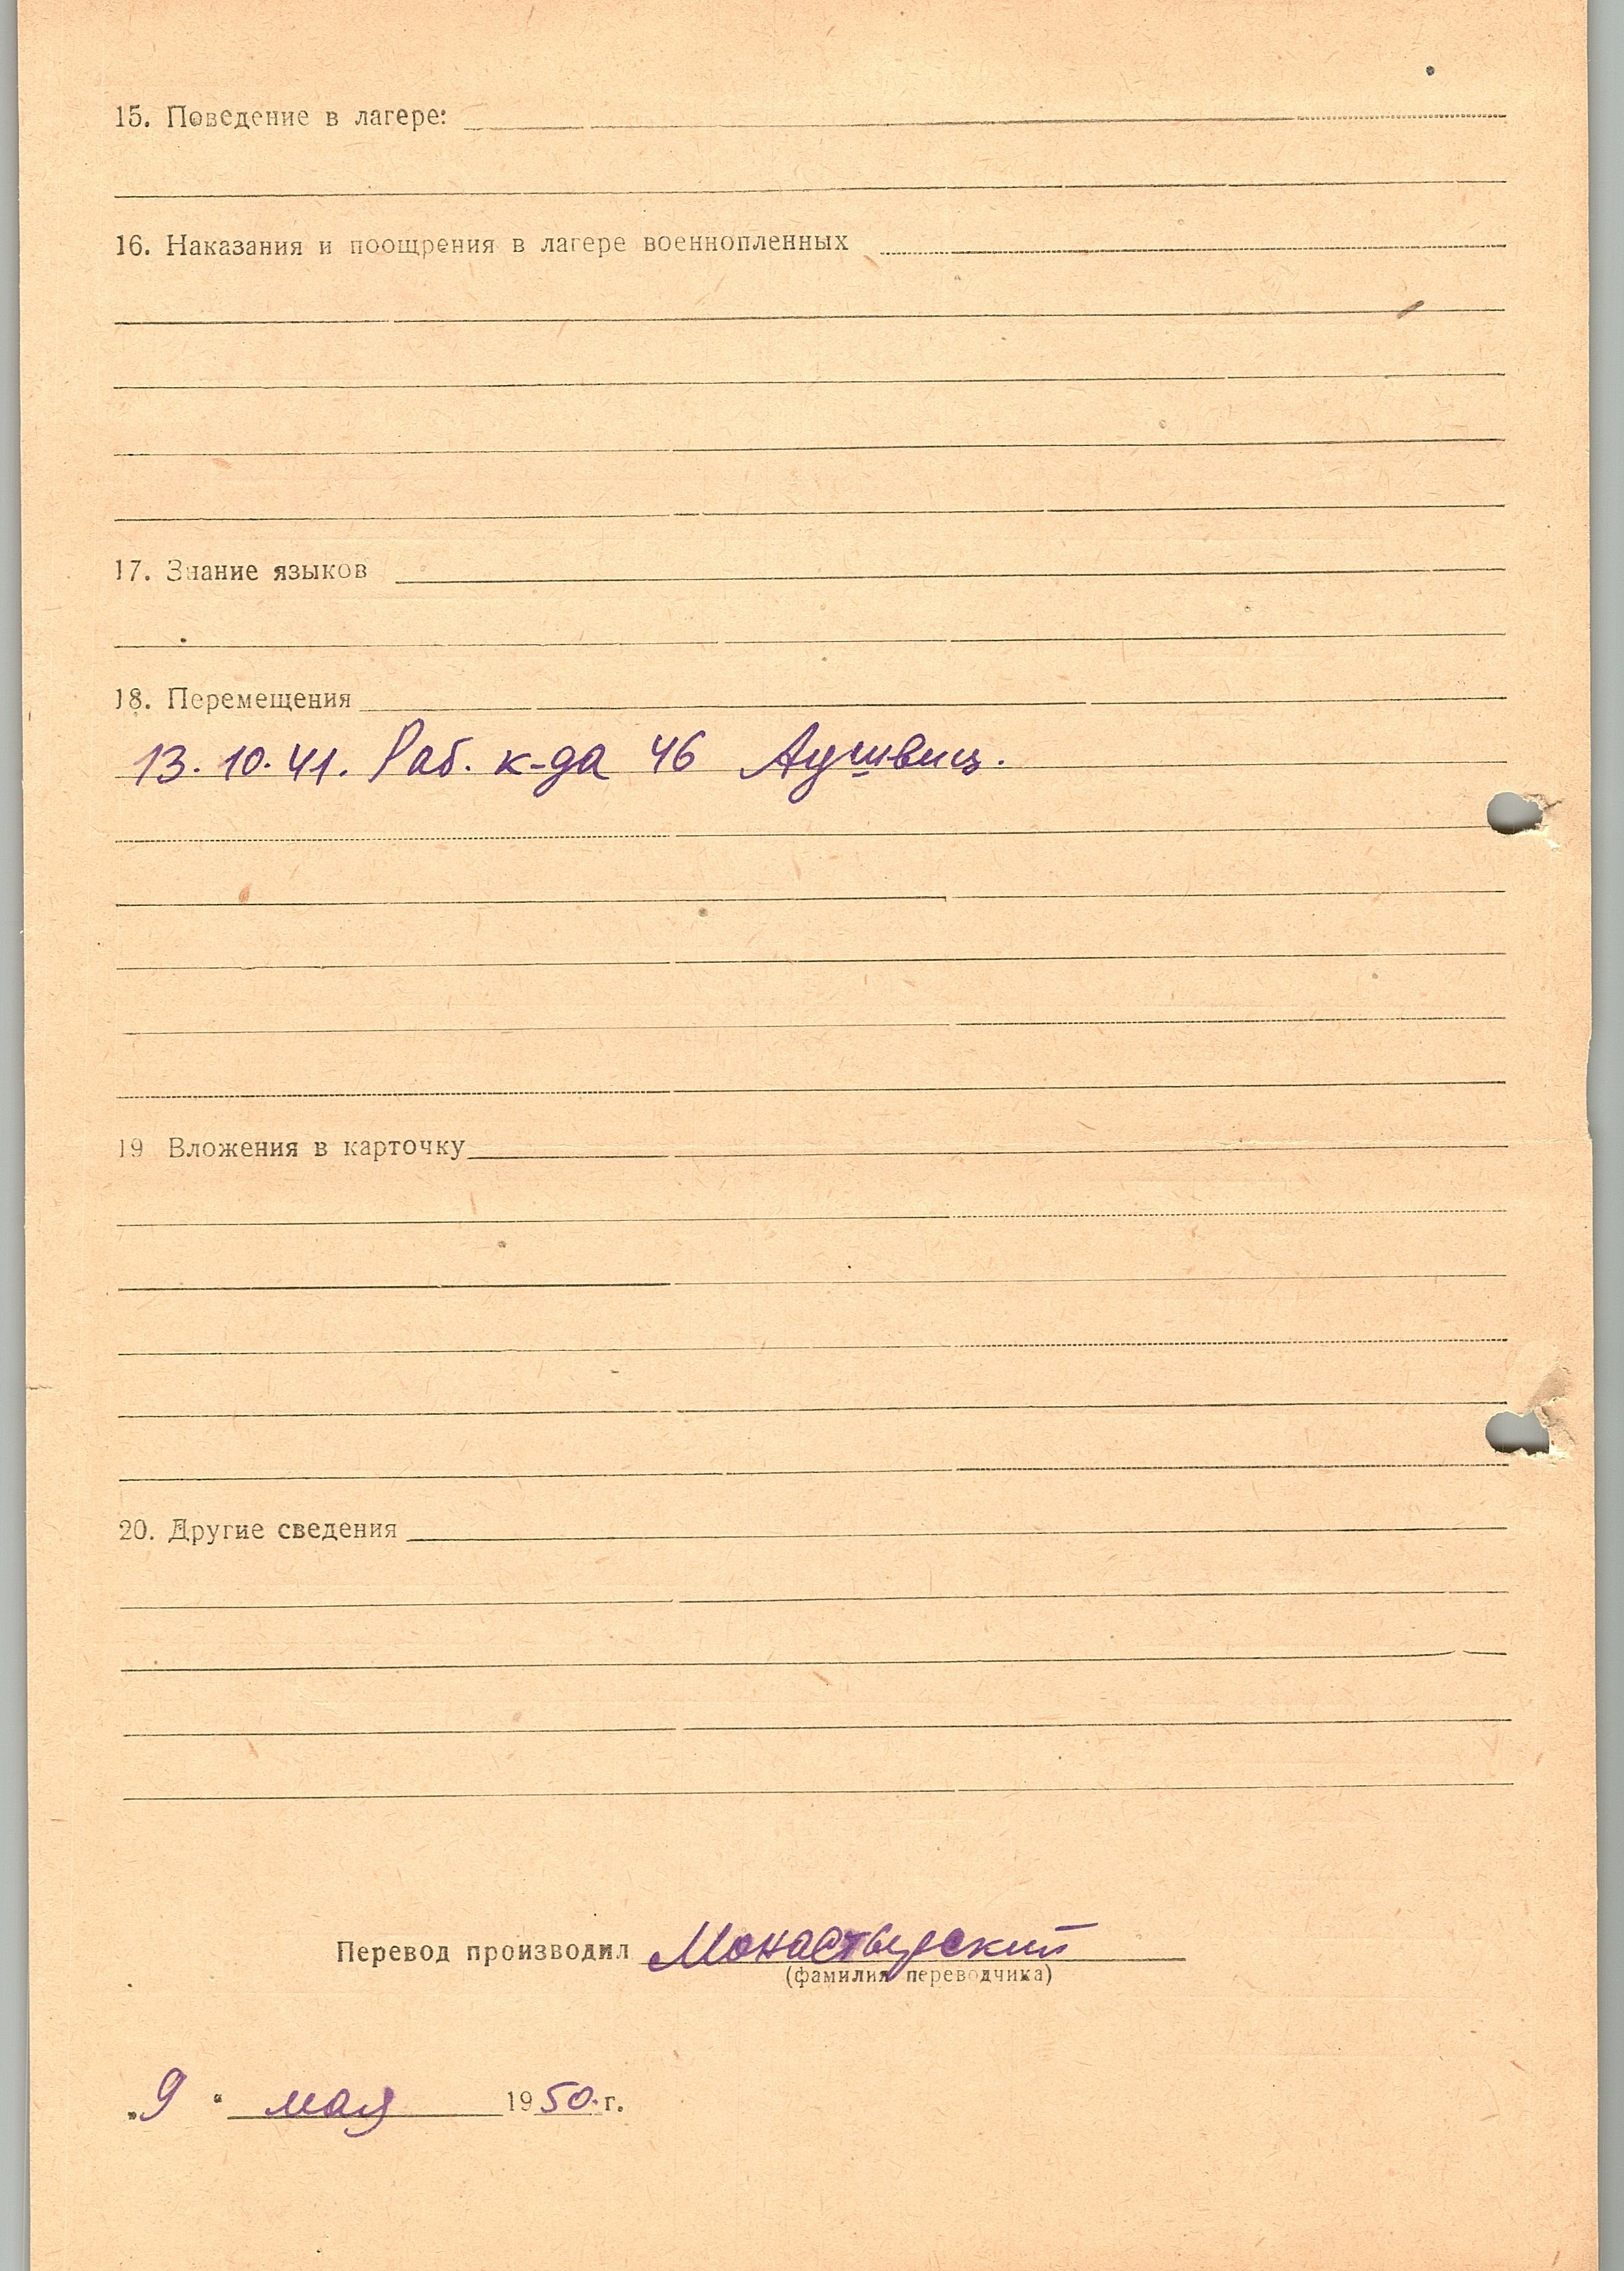 15. Поведение в лагере:
16. Наказания и поощрения в лагере военнопленных
17. Знание языков
18. Перемещения
13.10.41. Раб. к-да 46 Аушвиц.
19 Вложения в карточку
20. Другие сведения
Перевод производил Монастырский
(фамилия переводчика)
„9“ мая 1950.г.